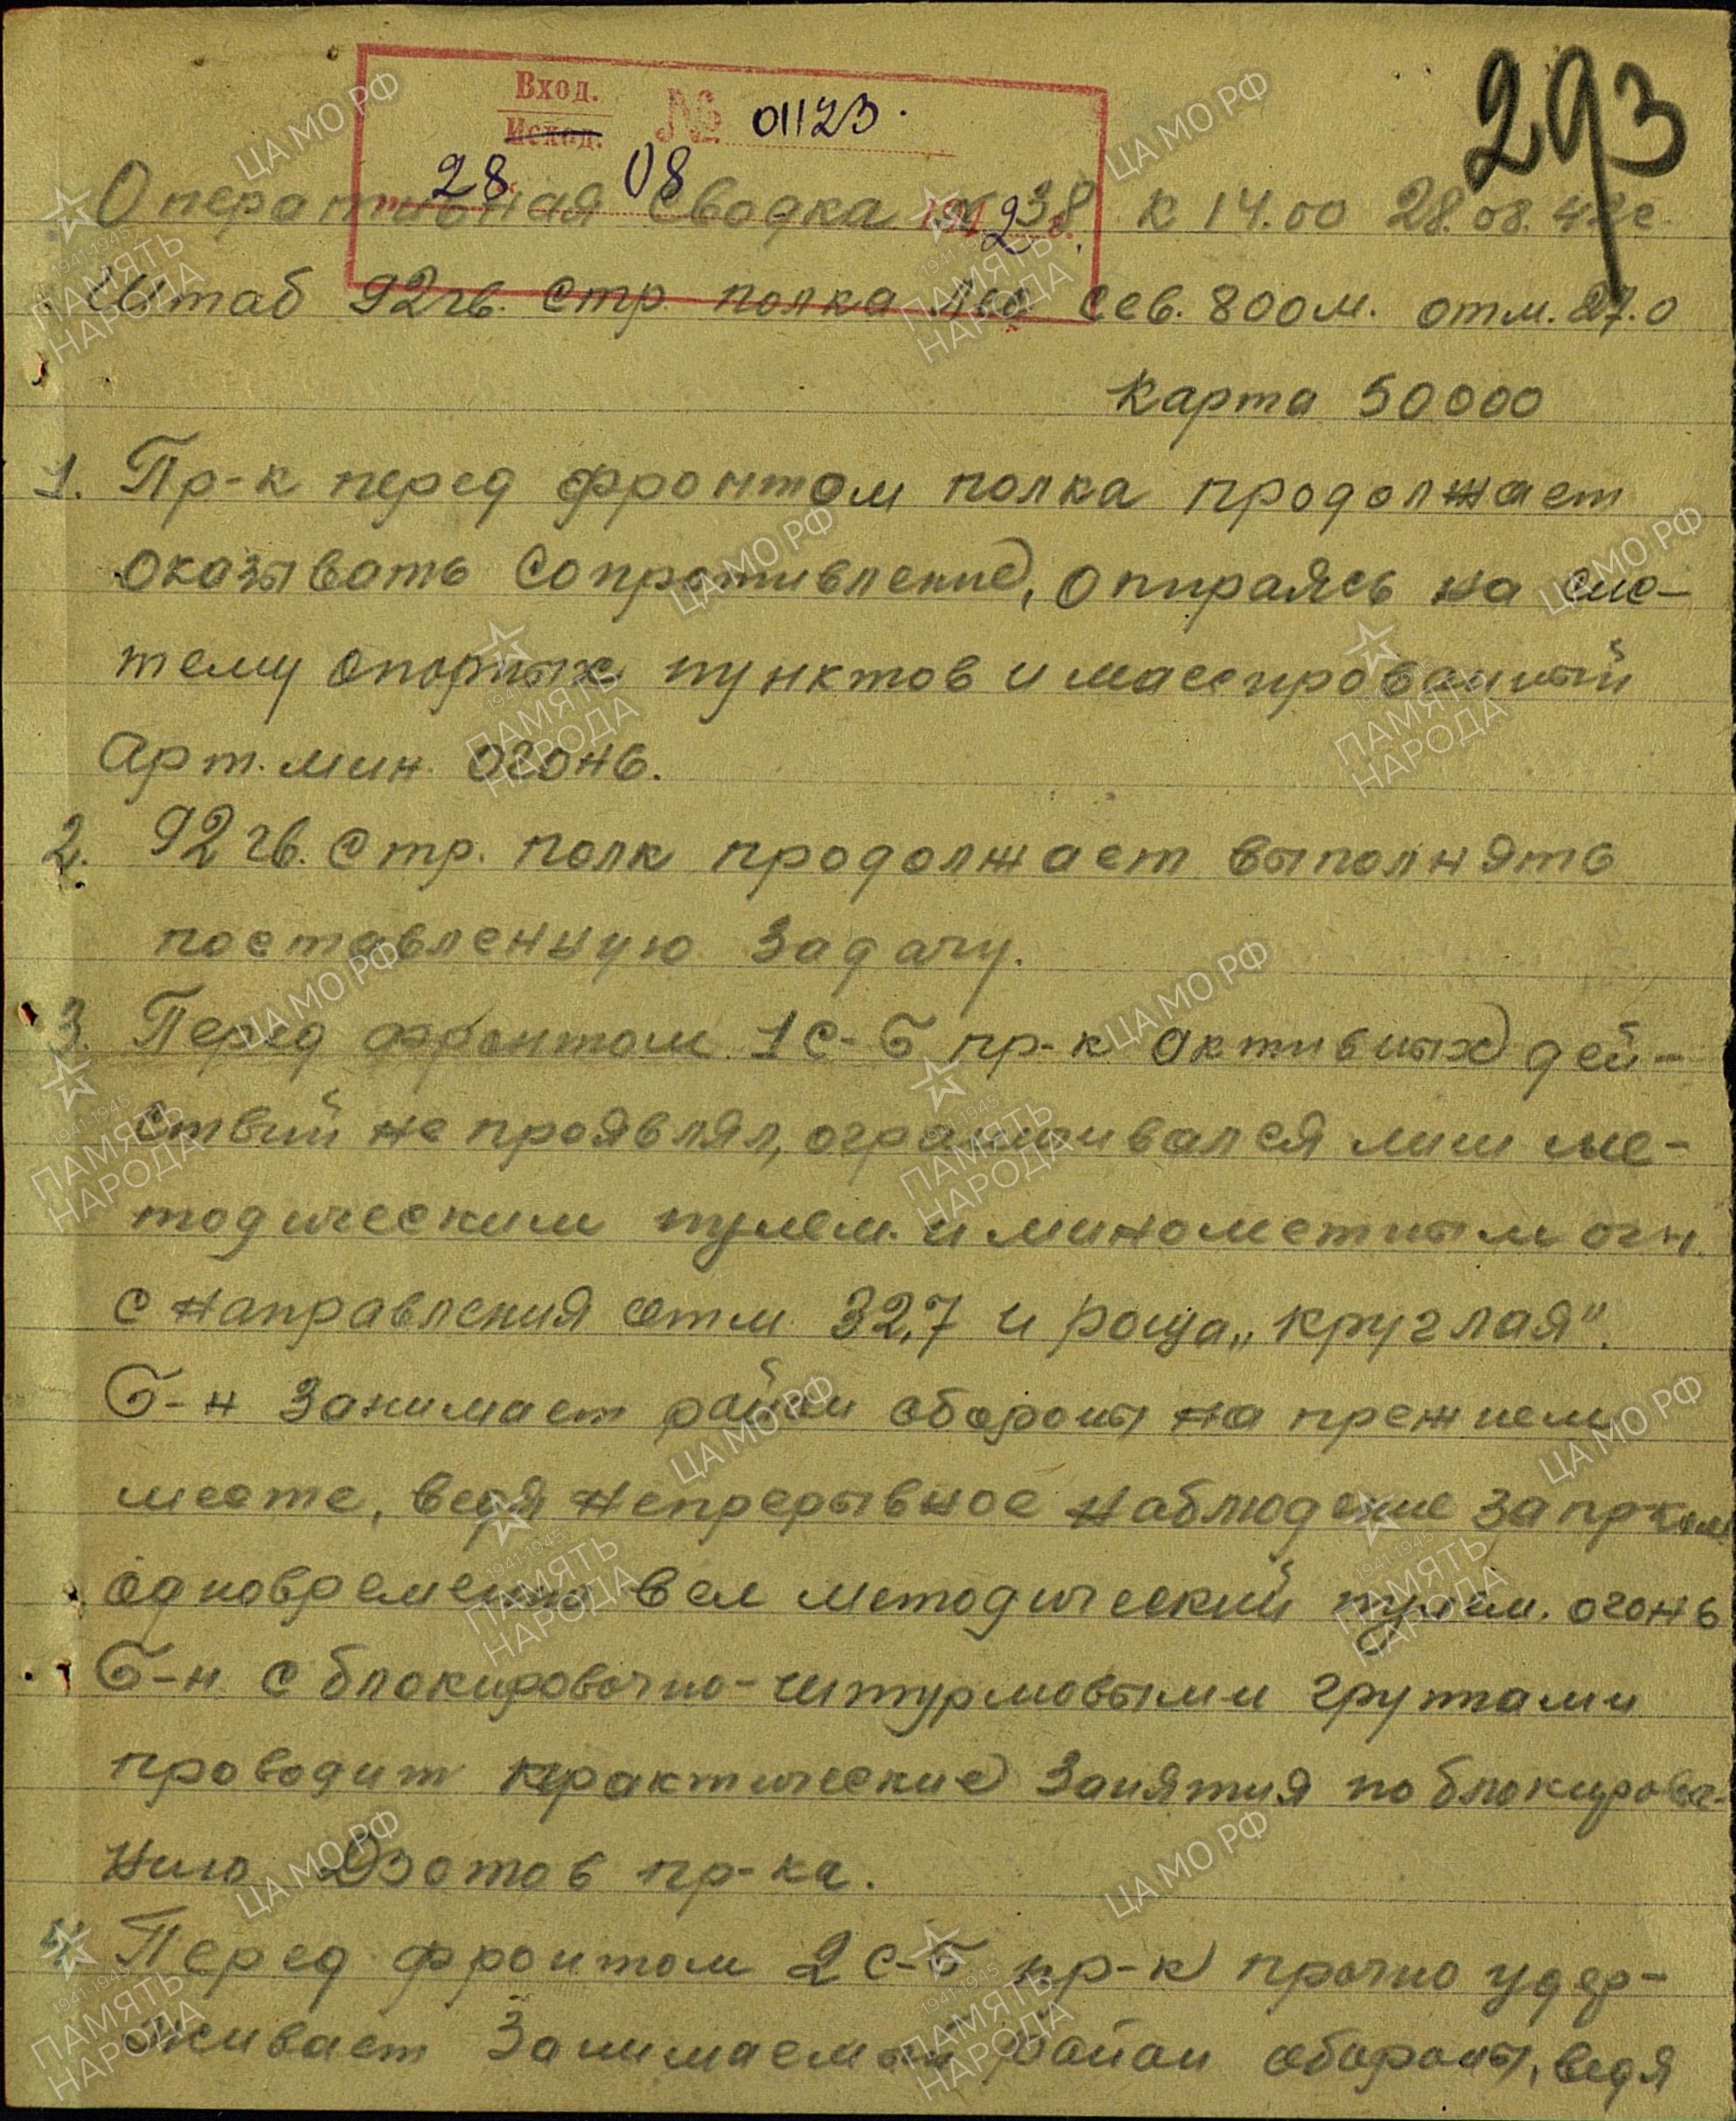 293
Вход.
Исход. № 01123.
28 08 1942 г.
Оперативная сводка № 238 к 14.00 28.08.42 г.
Штаб 92 гв. Стр. полка лес сев. 800 м. отм. 27.0
Карта 50000
1. Пр-к перед фронтом полка продолжает
оказывать сопротивление, опираясь на сис-
тему опорных пунктов и массированный
арт. мин. огонь.
2. 92 гв. стр. полк продолжает выполнять
поставленную задачу.
3. Перед фронтом 1 с-б пр-к активных дей-
ствий не проявлял, ограничивался лиш ме-
тодическим пулем. и минометным огн.
с направления отм 32,7 и роща „круглая".
Б-н занимает район обороны на прежнем
месте, ведя непрерывное наблюдение за пр-ком
одновременно вел методический пулем. огонь
Б-н с блокировочно-штурмовыми группами
проводит практические занятия по блокирова-
нию Дзотов пр-ка.
4. Перед фронтом 2 с-б пр-к прочно удер-
живает занимаемый район обороны, ведя
ЦА МО РФ
1941-1945
ПАМЯТЬ
НАРОДА